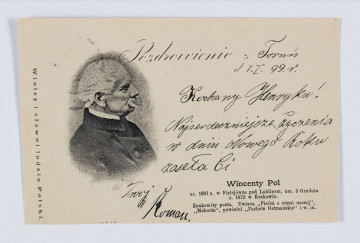 Pozdrowienie z Toruń
d. 1.I. 99 r.
Kochany Henryku!
Najserdeczniejsze życzenia
w dniu Nowego Roku
zaseła Ci
Twój
Roman.
Wincenty Pol
ur. 1807 r. w Firlejówce pod Lublinem, um. 2 Grudnia
r. 1872 w Krakowie.
Znakomity poeta. Twórca „Pieśni o ziemi naszej",
„Mohorta", powieści „Pachole Hetmańskie" i w. in.
Wielcy i sławni ludzie Polski.